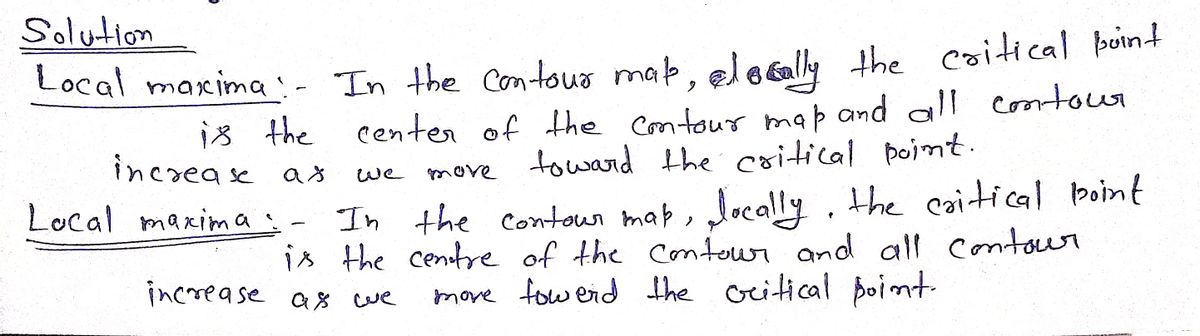 Solution
Local maxima :- In the contour map, locally the critical point
is the center of the contour map and all contour
increase as we move toward the critical point.
Local maxima :- In the contour map, locally, the critical point
is the centre of the contour and all contour
increase as we move towerd the critical point.